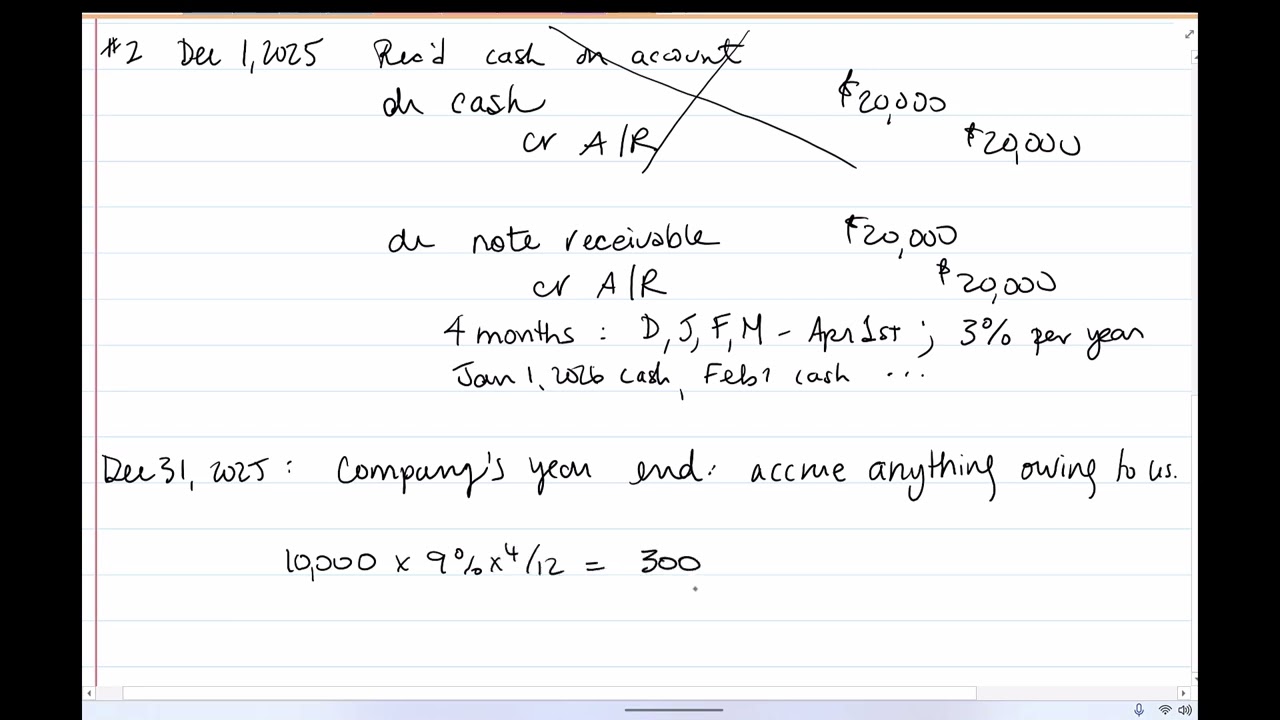 #2 Dec 1, 2025 Rec'd cash on account
dr cash $20,000
cr A/R $20,000
dr note receivable $20,000
cr A/R $20,000
4 months : D, J, F, M - Apr 1st ; 3% per year
Jan 1, 2026 cash, Feb 1 cash ...
Dec 31, 2025 : Company's year end: accrue anything owing to us.
10,000 x 9% x 4/12 = 300